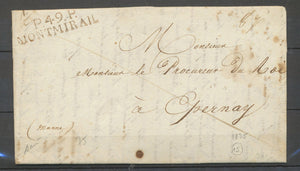 P.49.P.
MONTMIRAIL
Monsieur
Monsieur le Procureur du Roi
à Epernay
(Marne)